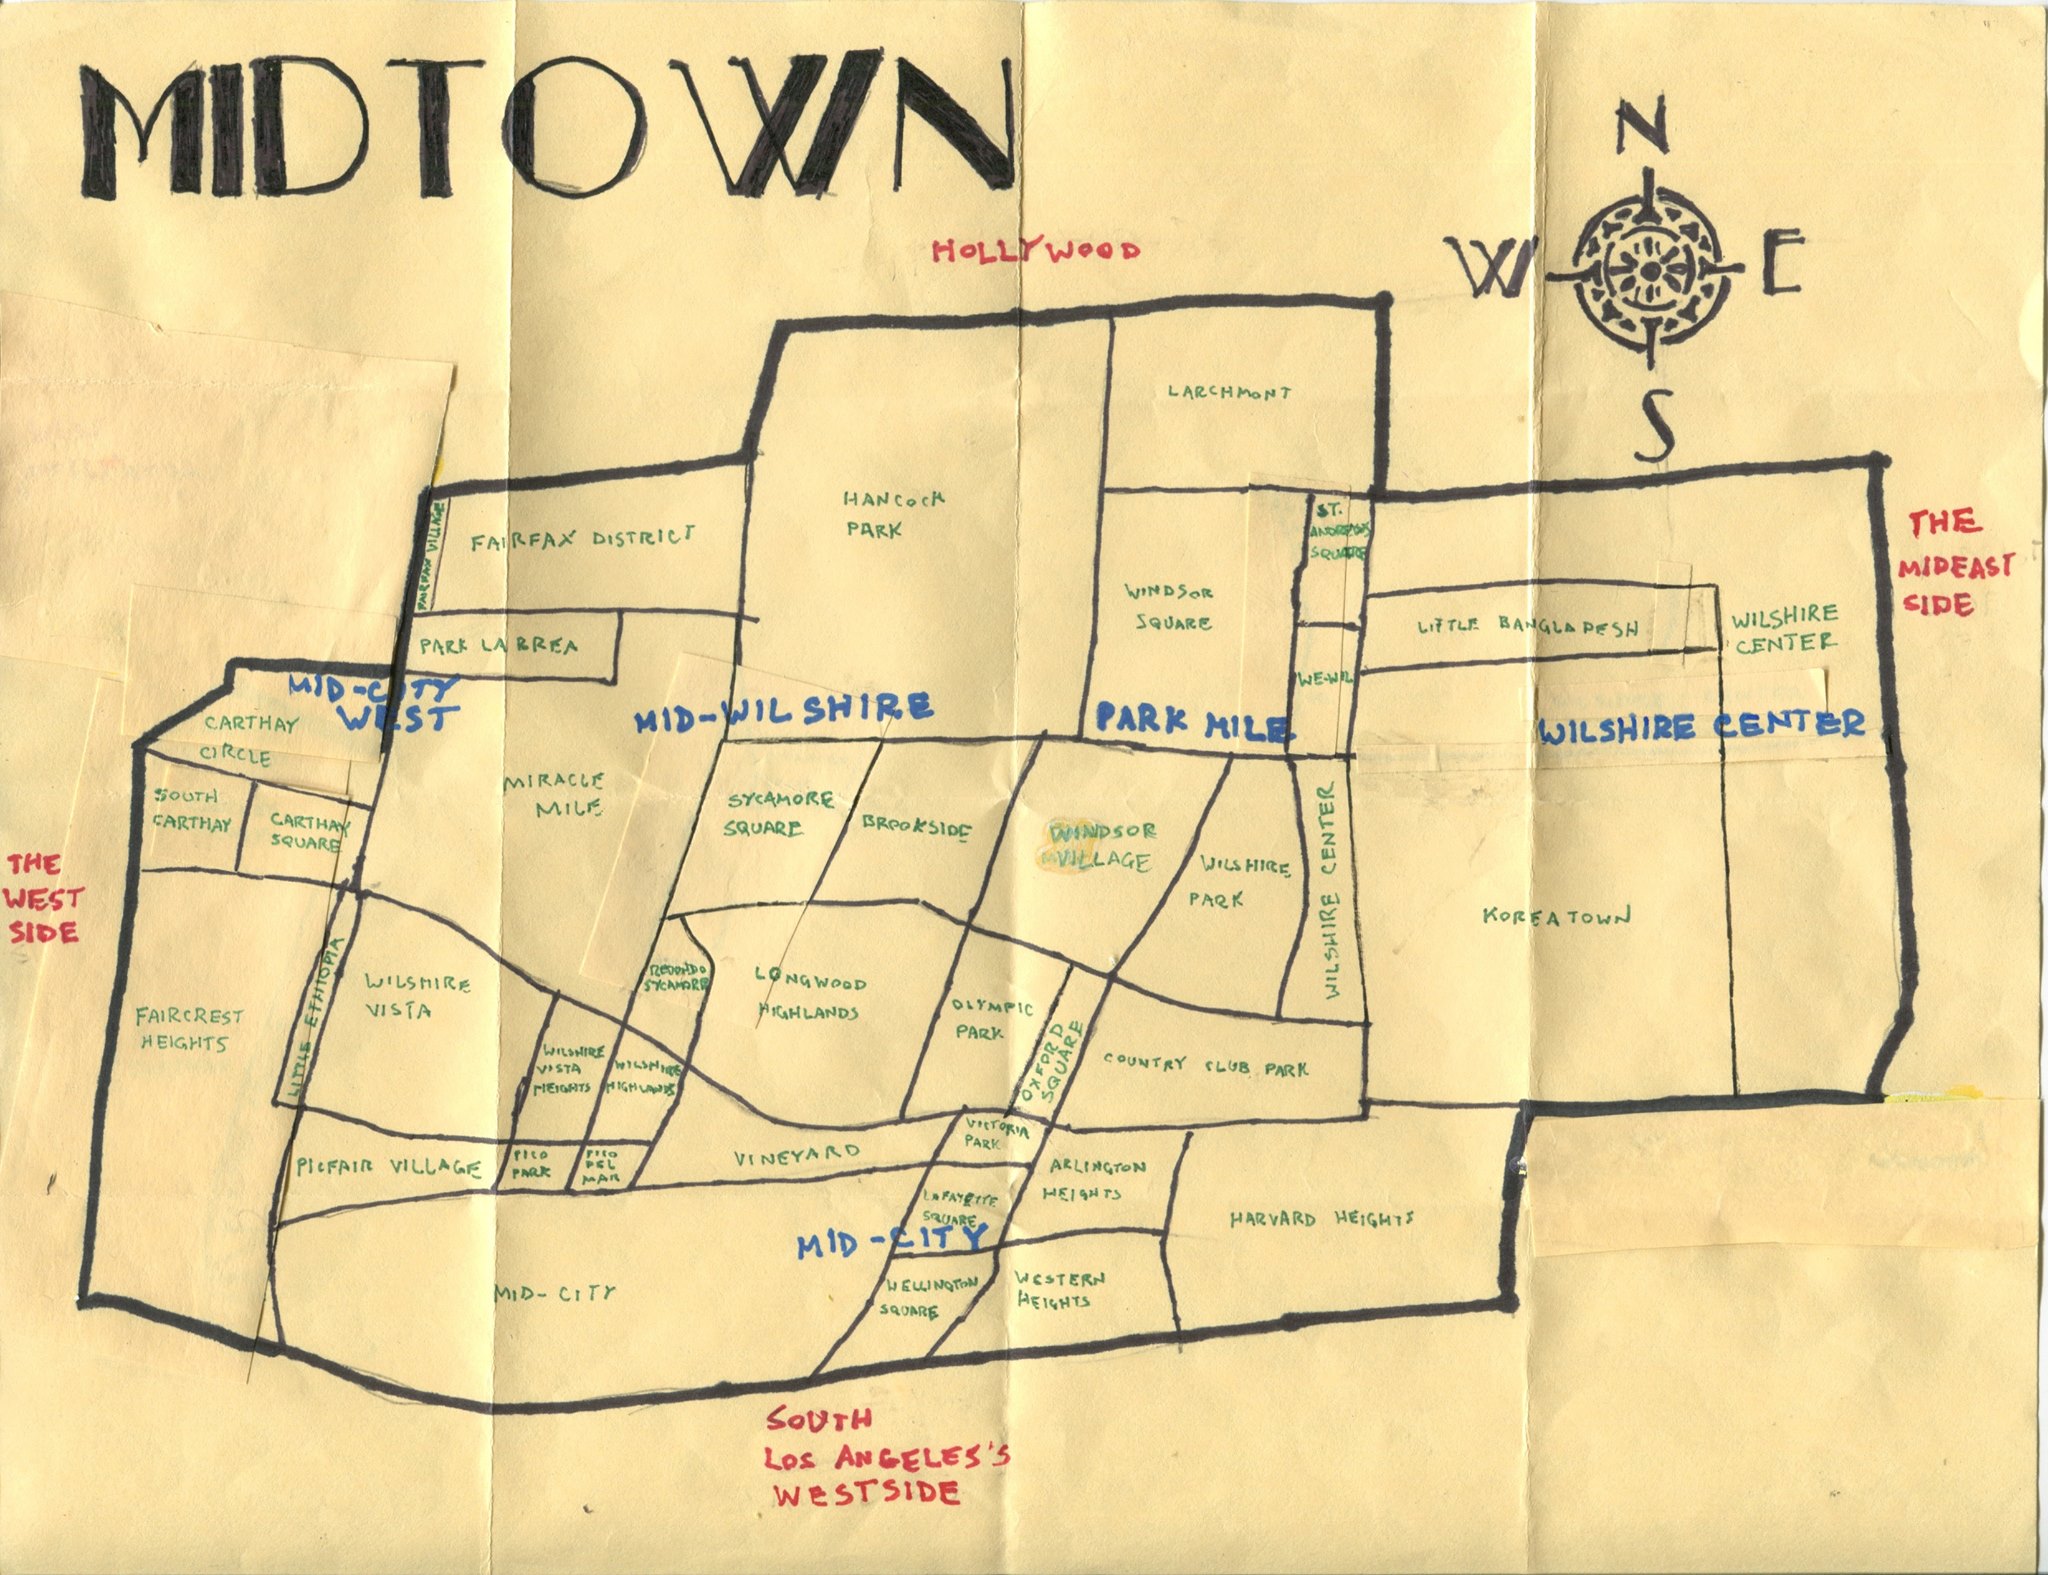 MIDTOWN
N
W
E
S
HOLLYWOOD
LARCHMONT
HANCOCK
PARK
FAIRFAX VILLAGE
FAIRFAX DISTRICT
ST.
ANDREWS
SQUARE
THE
MIDEAST
SIDE
WINDSOR
SQUARE
LITTLE BANGLADESH
WILSHIRE
CENTER
PARK LA BREA
WE-WIL
MID-CITY
WEST
MID-WILSHIRE
PARK MILE
WILSHIRE CENTER
CARTHAY
CIRCLE
MIRACLE
MILE
SOUTH
CARTHAY
CARTHAY
SQUARE
SYCAMORE
SQUARE
BROOKSIDE
WINDSOR
VILLAGE
WILSHIRE
PARK
WILSHIRE CENTER
THE
WEST
SIDE
KOREATOWN
LITTLE ETHIOPIA
WILSHIRE
VISTA
REDONDO
SYCAMORE
LONGWOOD
HIGHLANDS
OLYMPIC
PARK
OXFORD
SQUARE
FAIRCREST
HEIGHTS
WILSHIRE
VISTA
HEIGHTS
WILSHIRE
HIGHLANDS
COUNTRY CLUB PARK
PICFAIR VILLAGE
PICO
PARK
PICO
DEL
MAR
VINEYARD
VICTORIA
PARK
ARLINGTON
HEIGHTS
LAFAYETTE
SQUARE
HARVARD HEIGHTS
MID-CITY
MID-CITY
WELLINGTON
SQUARE
WESTERN
HEIGHTS
SOUTH
LOS ANGELES'S
WESTSIDE